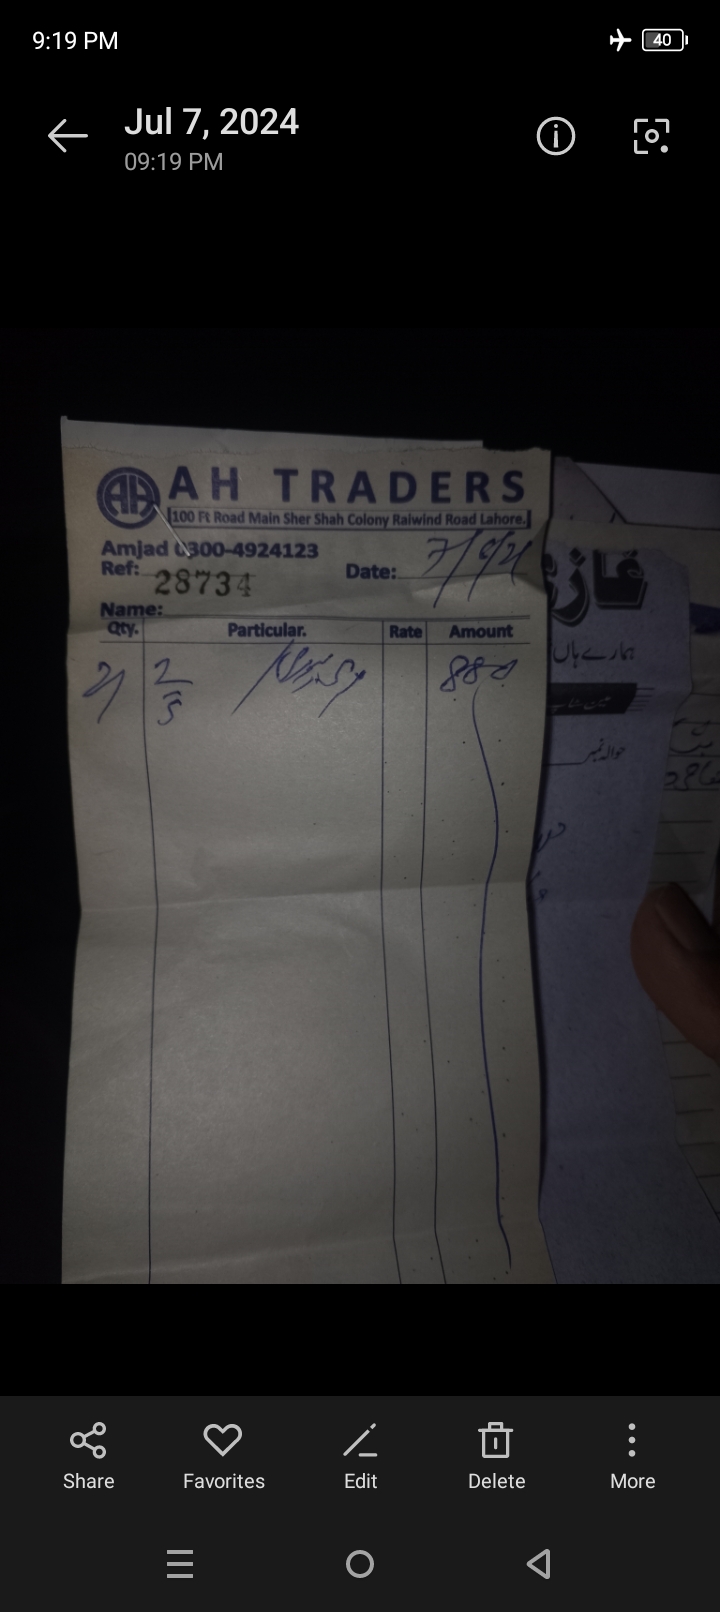 9:19 PM
40
Jul 7, 2024
09:19 PM
AH AH TRADERS
100 Ft Road Main Sher Shah Colony Raiwind Road Lahore.
Amjad 0300-4924123
Ref: 28734 Date:
Name:
Qty. Particular. Rate Amount
2/5 880
ہمارے ہاں
حوالہ نمبر
Share Favorites Edit Delete More